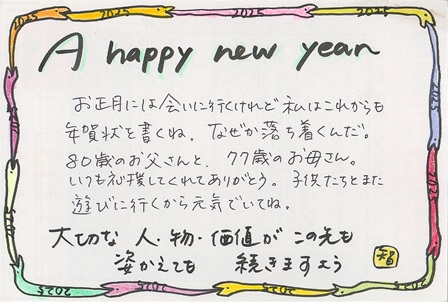 2025 2025 2025 2025
A happy new year
お正月には会いに行くけれど 私はこれからも
年賀状を書くね。なぜか落ち着くんだ。
80歳のお父さんと、77歳のお母さん。
いつも応援してくれてありがとう。子供たちとまた
遊びに行くから元気でいてね。
大切な 人・物・価値が この先も
姿かえても 続きますよう
智
2025 2025 2025 2025